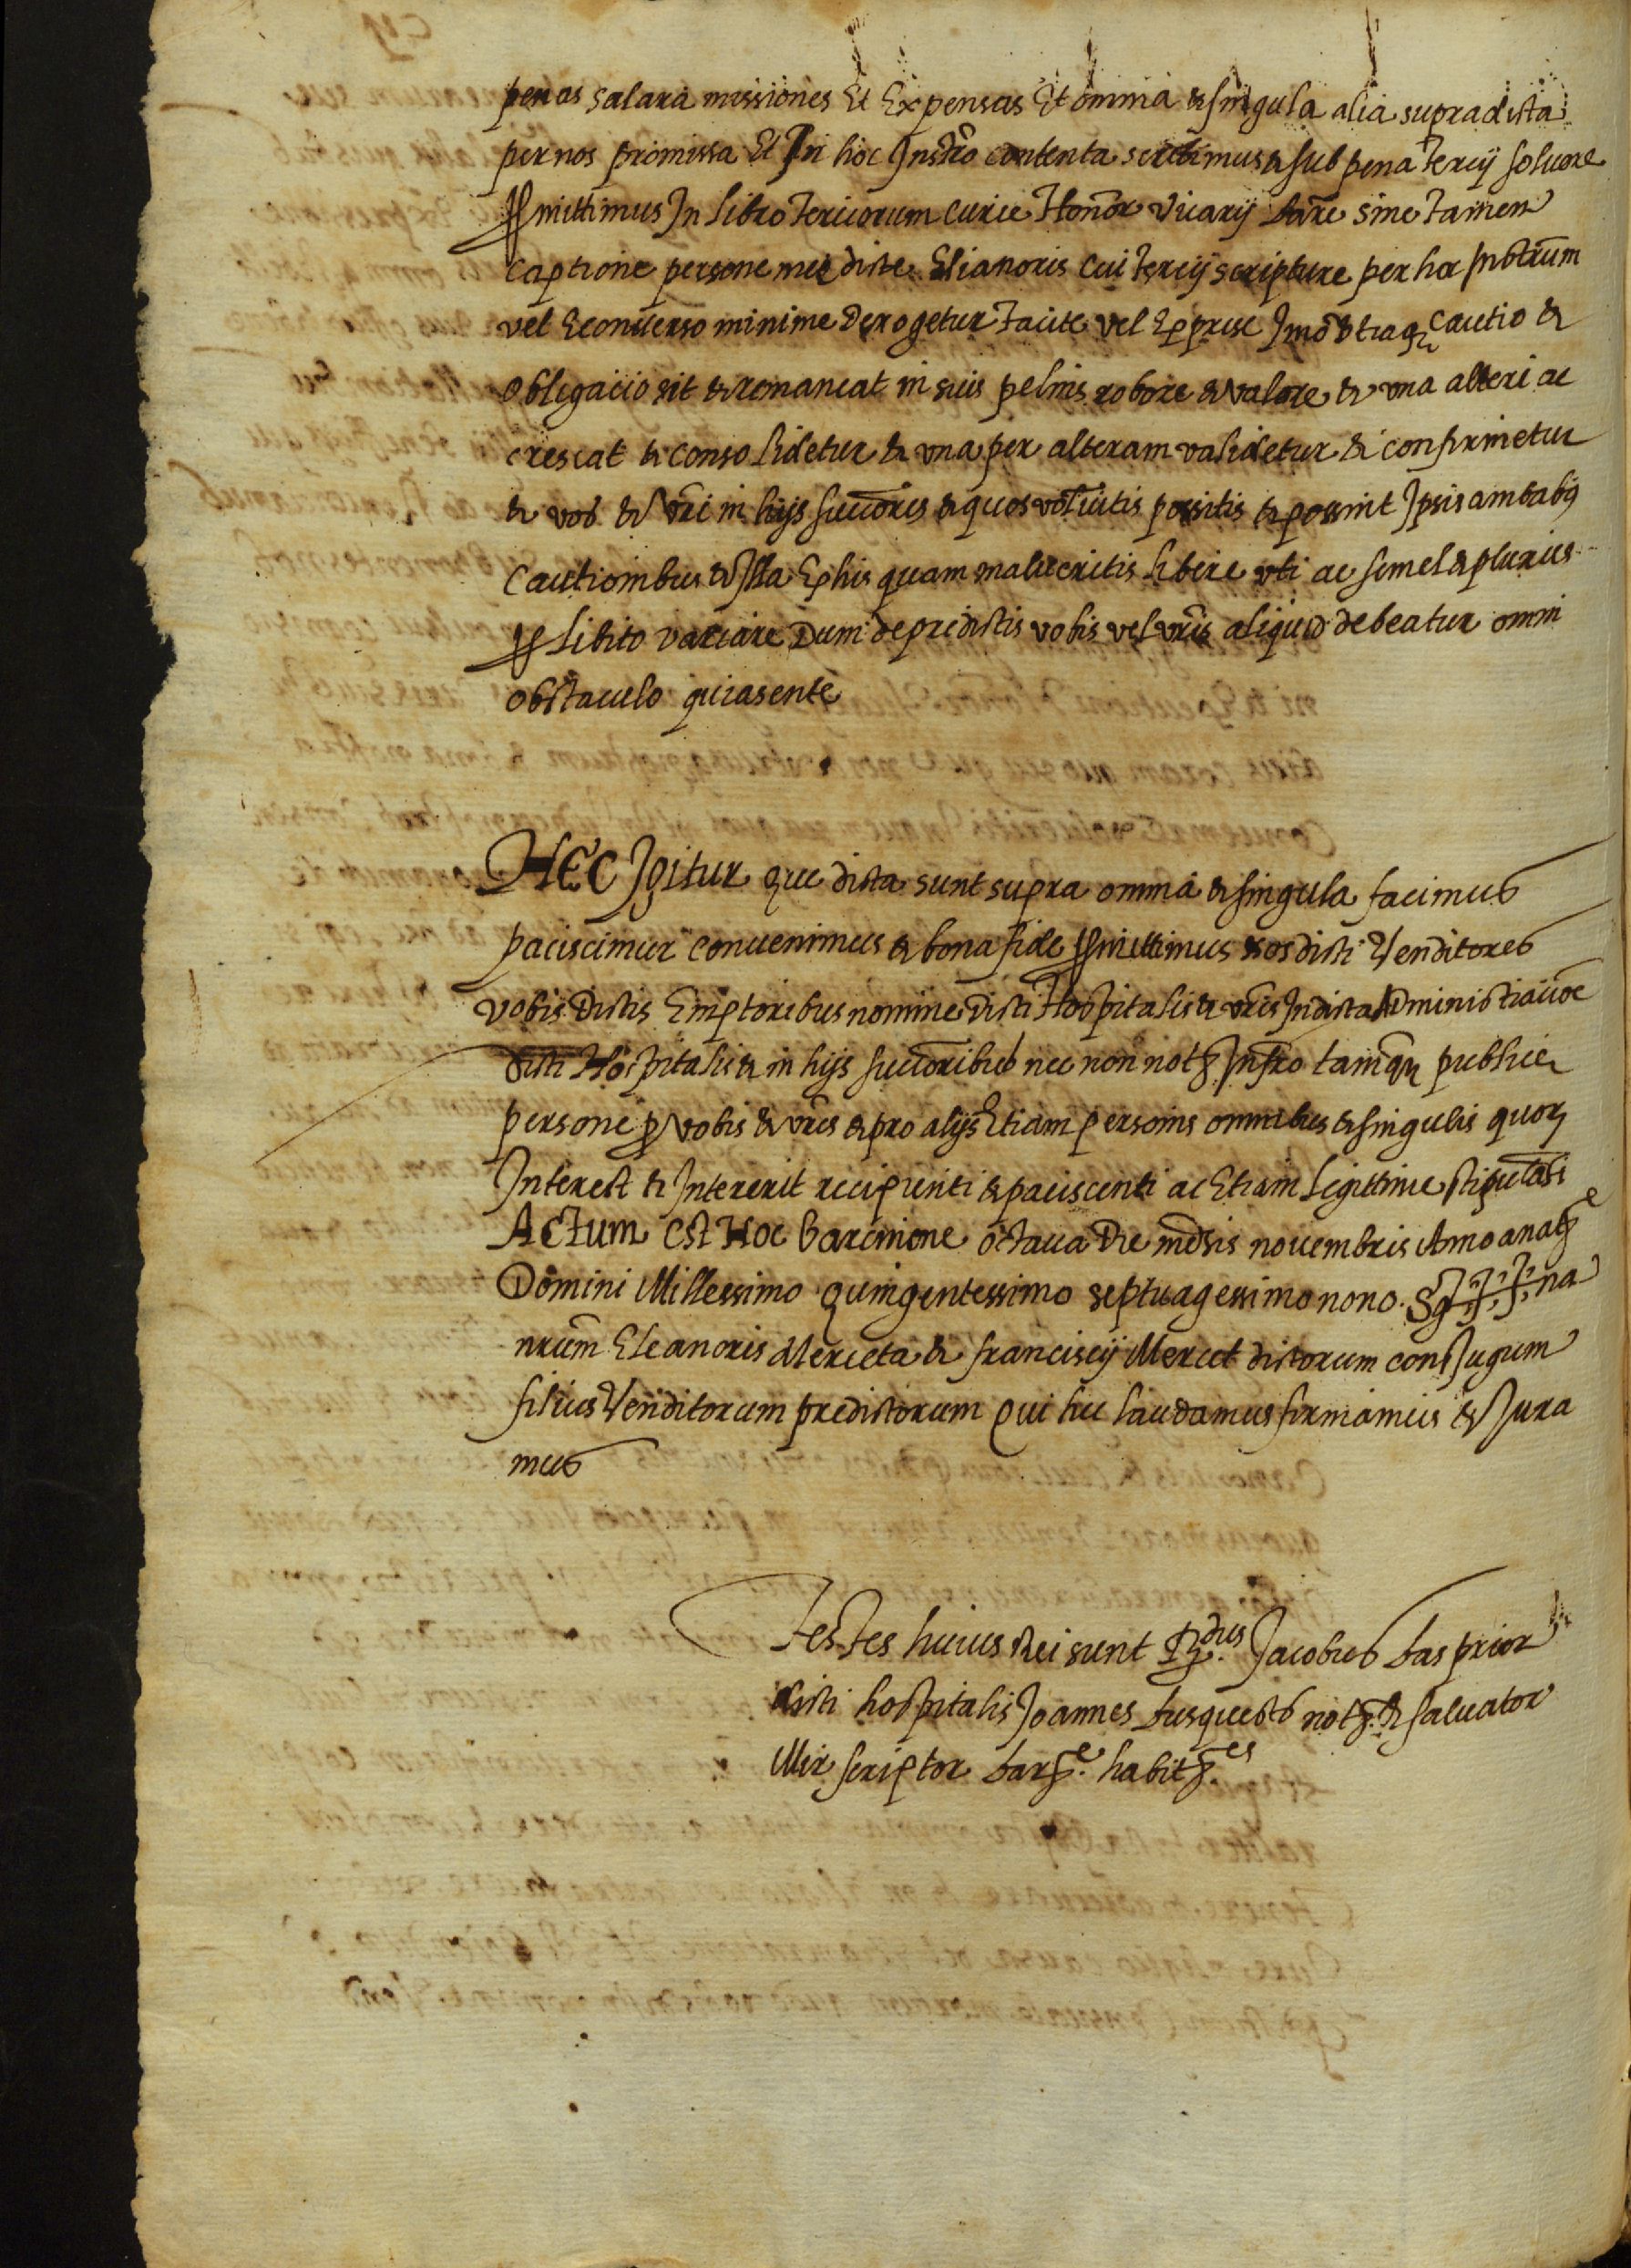 penas salaria missiones Et Expensas Et omnia & singula alia supradicta
per nos promissa Et In hoc Instrō contenta scribimus & sub pena Tercij soluere
pmittimus In libro Terciorum Curie Honor Vicarij Barē sine Tamen
Captione persone mee dicte Elianoris Cui Tercij scripture per hoc Instrum
vel Econuerso minime Derogetur Tacite vel Expresse Imō vtraq Cautio &
obligacio sit & remaneat in suis plenis robore & valore & vna alteri ac
crescat & consolidetur & vna per alteram validetur & confirmetur
& vob & vri in hijs succoris & quos volueritis possitis & possint Ipsis ambabq
Cautionibus & Illa Ex his quam malueritis libere vti ac semel & pluries
p libito variare Dum de predictis vobis vel vris aliquid debeatur omni
obstaculo quiescente
HEC Igitur que dicta sunt supra omnia & singula facimus
paciscimur conuenimus & bona fide pmittimus nos dicti Venditores
vobis Dictis Emptoribus nomine Dicti Hospitalis & vris In dicta Administratioe
dicti Hospitalis & in hijs succoribus nec non not Infro tamqu publice
persone p vobis & vris & pro alijs Etiam personis omnibus & singulis quor
Interest & Intererit recipienti & paciscenti ac Etiam Legittime stipulāti
ACTum EST HOC Barcinone octaua Die mēsis nouembris Anno a nate
Domini Millessimo quingentessimo septuagessimo nono. Sig+++na
nrum Eleanoris Merceta & francisci Mercet dictorum conjugum
filius Venditorum predictorum Qui hec laudamus firmamus & Jura
mus
Testes huius Rei sunt Rdus. Jacobus bas prior
dicti hospitalis Joannes busquets not. & saluator
Mir scriptor bare. habites.